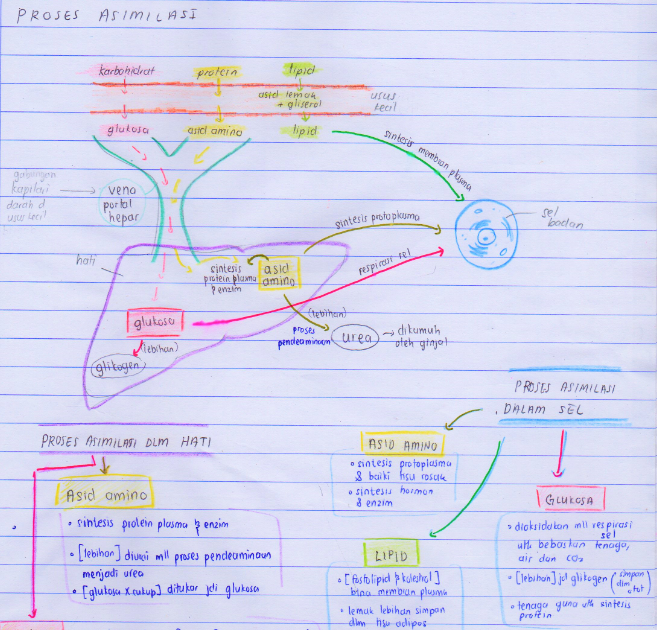 PROSES ASIMILASI
karbohidrat
protein
lipid
asid lemak
+ gliserol
usus
kecil
glukosa
asid amino
lipid
sintesis membran plasma
kapilari
darah d
usus kecil
vena
portal
hepar
sintesis protoplasma
sel
badan
hati
sintesis
protein plasma
& enzim
asid
amino
respirasi sel
glukosa
(lebihan)
glikogen
(lebihan)
proses
pendeaminaan
urea
dikumuh
oleh ginjal
PROSES ASIMILASI
DALAM SEL
PROSES ASIMILASI DLM HATI
ASID AMINO
• sintesis protoplasma
& baiki tisu rosak
• sintesis hormon
& enzim
GLUKOSA
• dioksidakan mll respirasi
sel
utk bebaskan tenaga,
air dan CO2
• [lebihan] jd glikogen (simpan
dlm
otot)
• tenaga guna utk sintesis
protein
Asid amino
• sintesis protein plasma & enzim
• [lebihan] diurai mll proses pendeaminaan
menjadi urea
• [glukosa X cukup] ditukar jdi glukosa
LIPID
• [fosfolipid & kolesterol]
bina membran plasma
• lemak lebihan simpan
dlm tisu adipos